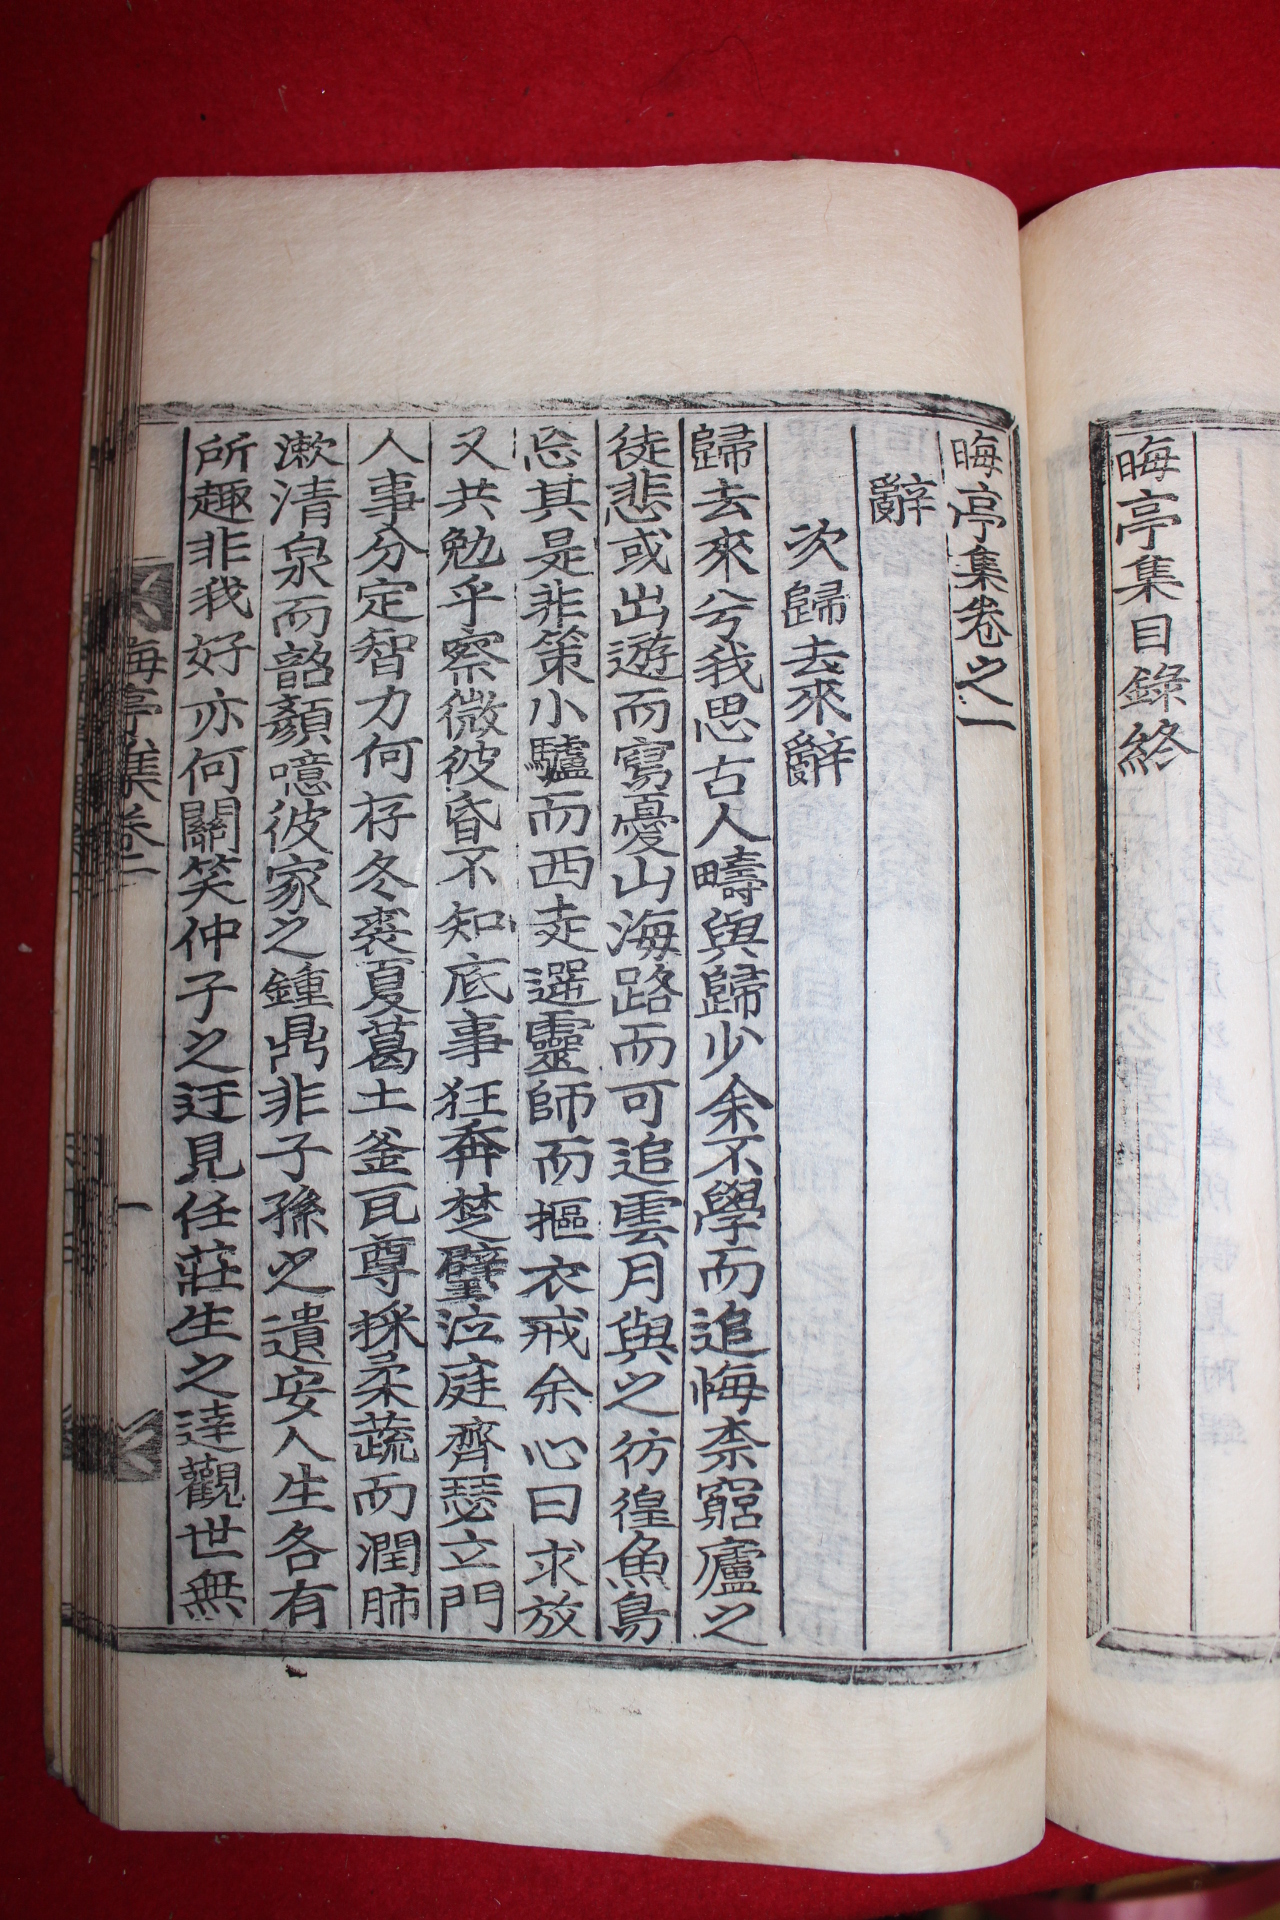 晦亭集目錄終
晦亭集卷之一
辭
次歸去來辭
歸去來兮我思古人疇與歸少余不學而追悔柰窮廬之
徒悲或出遊而寫憂山海路而可追雲月與之彷徨魚鳥
忘其是非策小驢而西走選靈師而摳衣戒余心曰求放
又共勉乎察微彼昏不知底事狂奔楚璧泣庭齊瑟立門
人事分定智力何存冬裘夏葛土釜瓦尊採柔蔬而潤肺
漱清泉而韶顏噫彼家之鍾鼎非子孫之遺安人生各有
所趣非我好亦何關笑仲子之迂見任莊生之達觀世無
晦亭集卷一
一